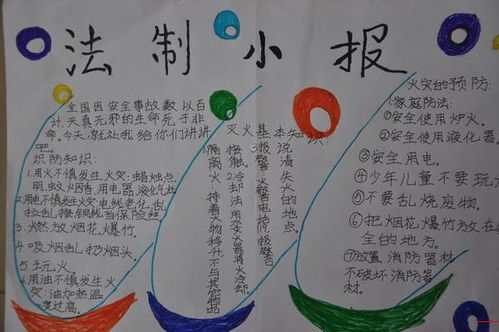 法制小报
全国因安全事故数以百
计.天真无邪的生命死于非
命。今天,就让我给你们讲讲
吧
识防知识:
1.用火不慎发生火灾:蜡烛点
明,蚊烟香,用电器,液化气灶
2.用电不慎发生火灾:电线老化,乱
拉乱接,铜丝当保险丝
3.燃放烟花爆竹.
4.吸烟乱扔烟头.
5.玩火
6.用油不慎发生火
灾:油加热温
度过高.
灭火基本知识:
报警:火警电话
火灾的预防:
1.家庭防法:
①安全使用炉火。
②安全使用液化器.
③安全用电.
④少年儿童不要玩火
⑤不要乱烧废物.
⑥把烟花爆竹放在
全的地方.
⑦放置消防器材
不破坏消防器
材.